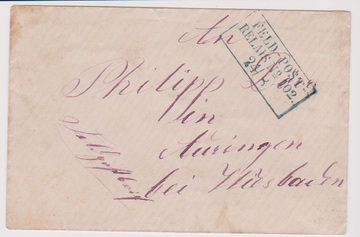 An
FELD-POST-
RELAIS No 102.
24/
Philipp
in
Auringen
bei Wiesbaden
Feldpostbrief